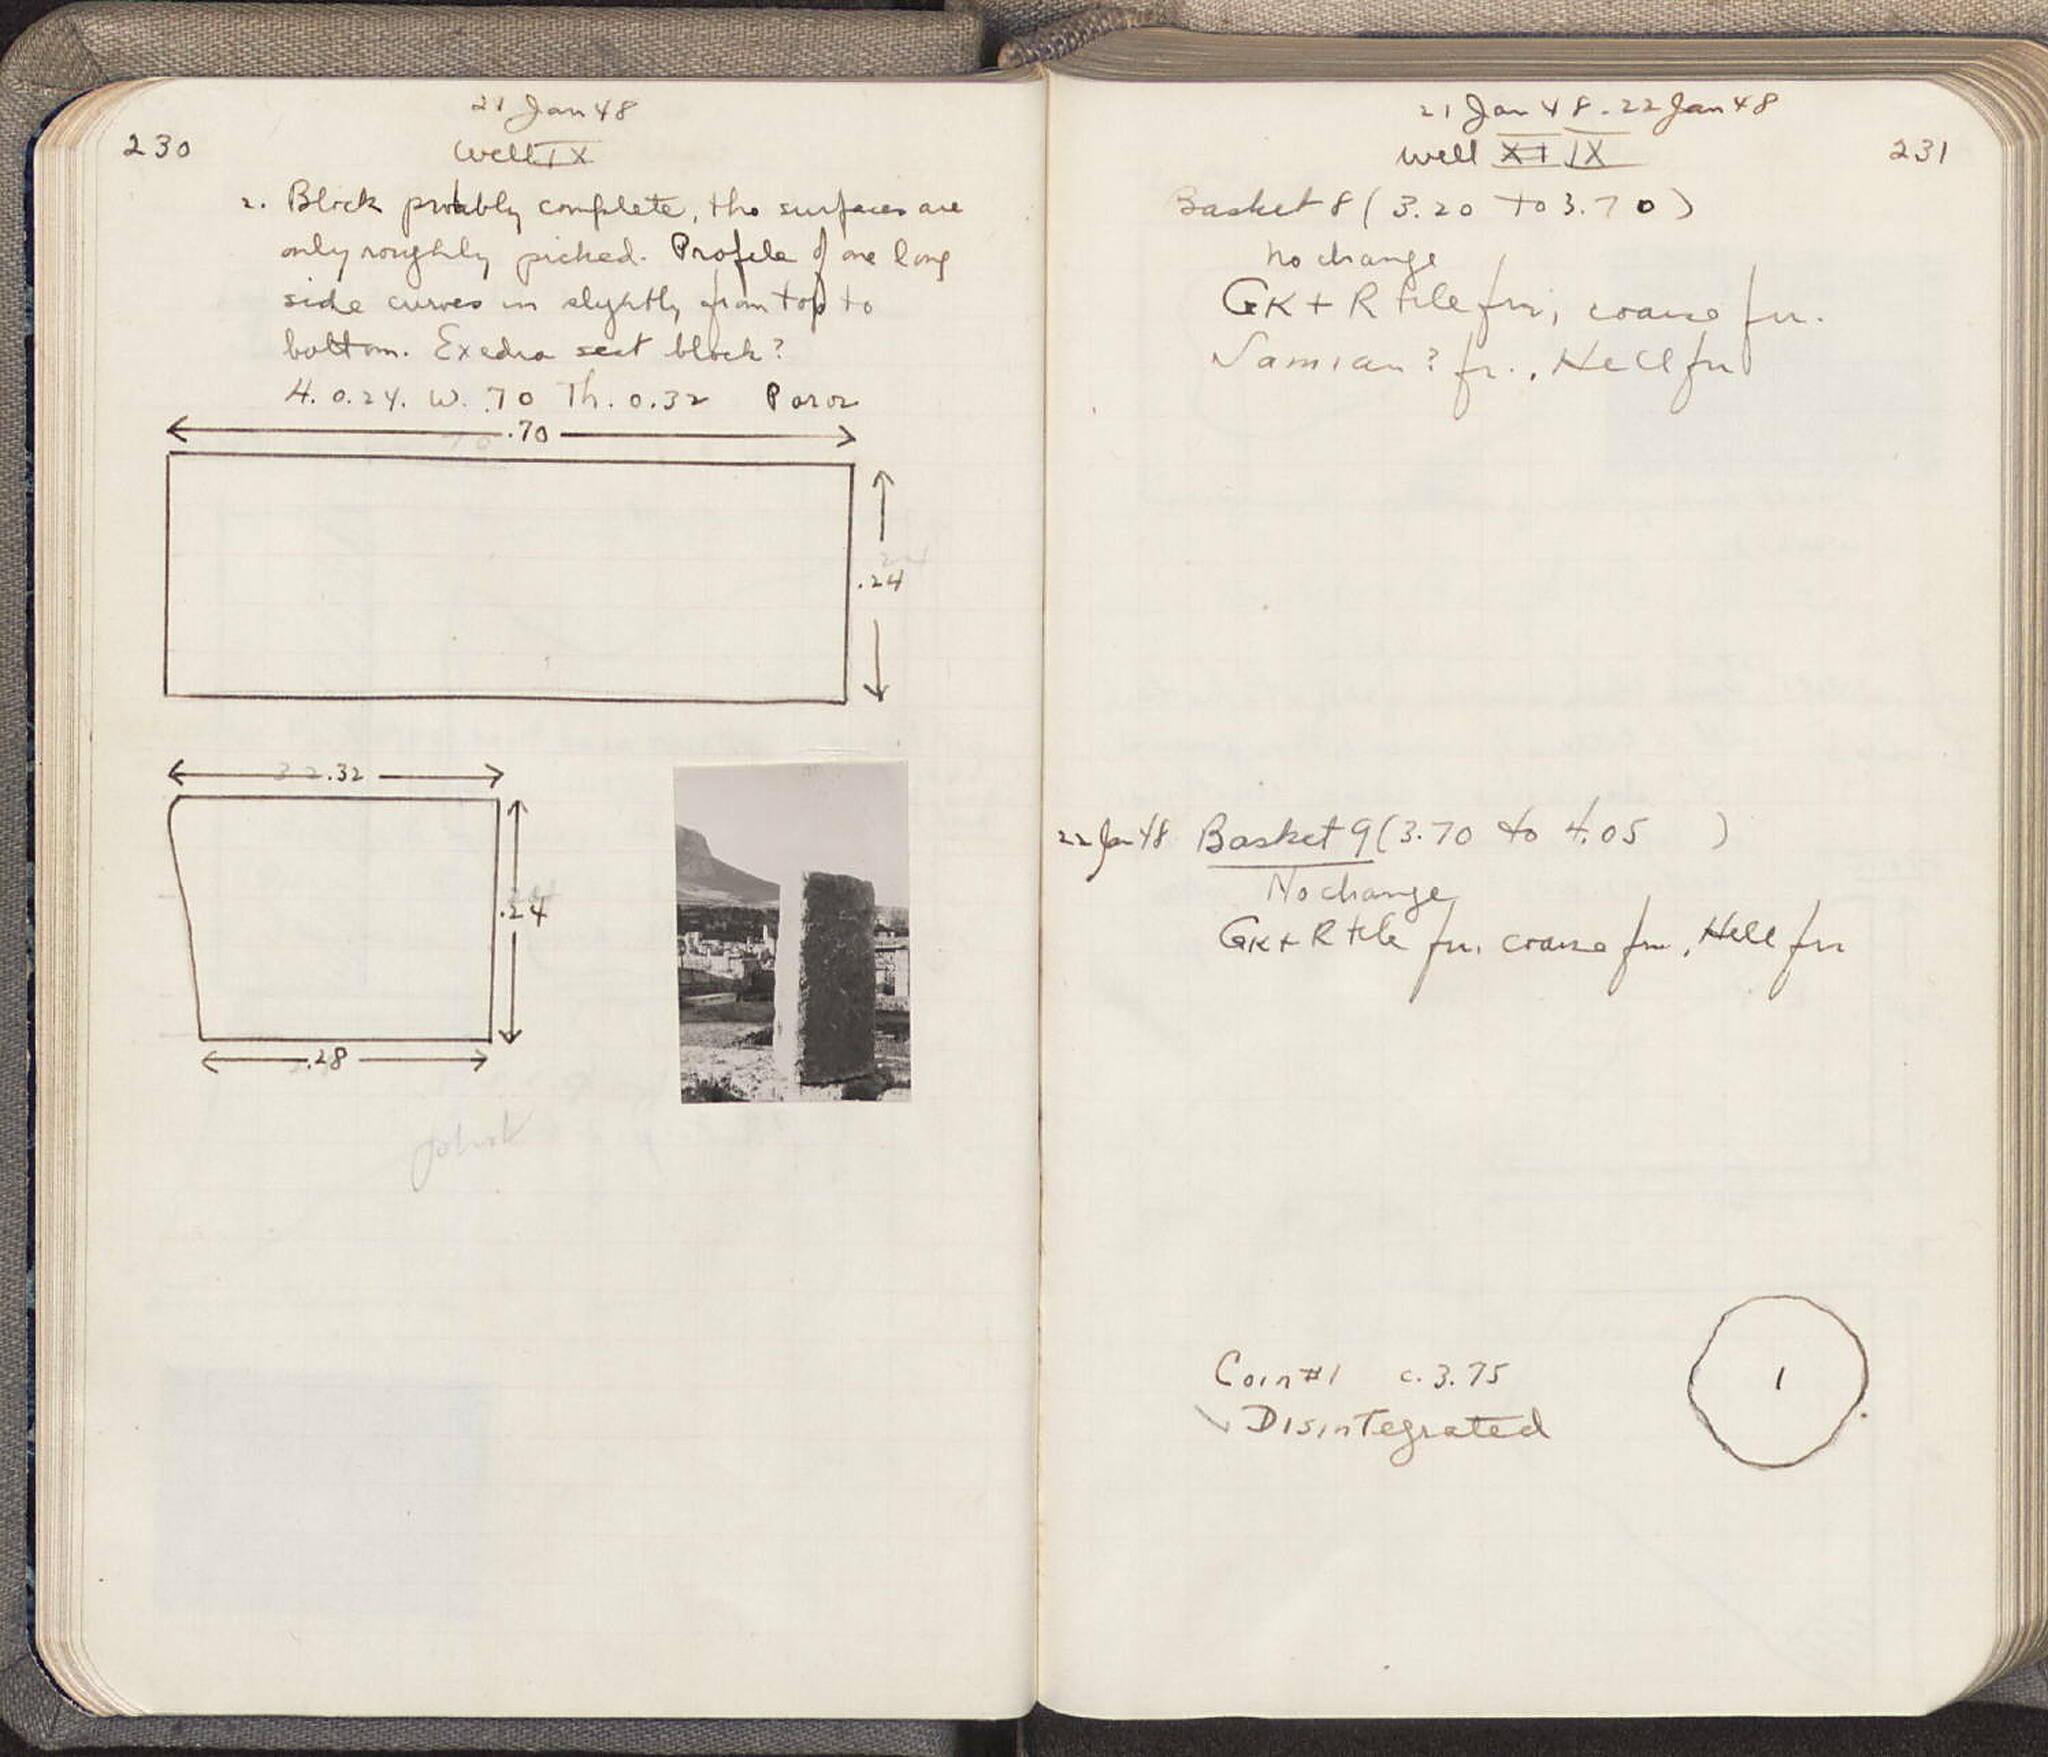 21 Jan 48
230
Well IX
2. Block probably complete, tho surfaces are
only roughly picked. Profile of one long
side curves in slightly from top to
bottom. Exedra seat block?
H. 0.24. W. .70 Th. 0.32 Poros
.70
.24
.32
.24
.28
photo
21 Jan 48 - 22 Jan 48
Well XI IX
231
Basket 8 (3.20 to 3.70)
No change
GK + R tile frr, coarse frr.
Samian? fr., Hell frr
22 Jan 48 Basket 9 (3.70 to 4.05 )
No change
GK + R tile frr, coarse frr, Hell frr
Coin #1 c. 3.75
Disintegrated
1